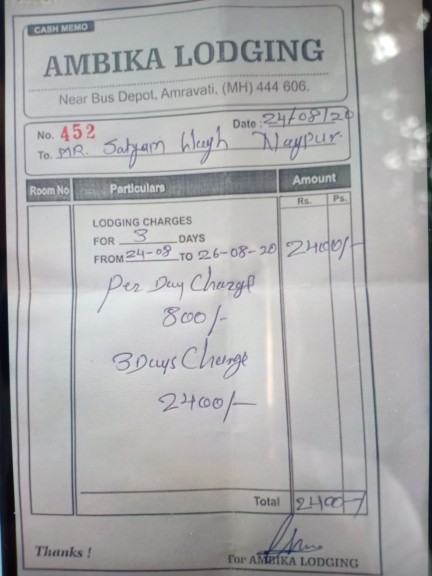 CASH MEMO
AMBIKA LODGING
Near Bus Depot, Amravati. (MH) 444 606.
No. 452 Date : 24/08/20
To. MR. Satyam Wagh Nagpur.
Room No Particulars Amount
Rs. Ps.
LODGING CHARGES
FOR 3 DAYS
FROM 24-08 TO 26-08-20 2400/-
Per Day Charge
800/-
3 Days Charge
2400/-
Total 2400/-
Thanks !
For AMBIKA LODGING